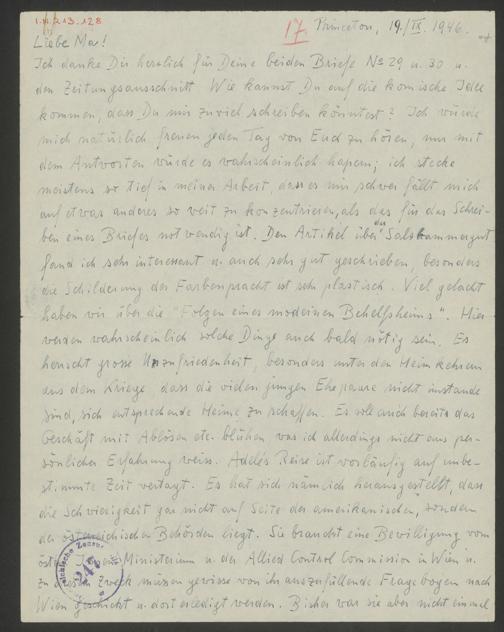 I.N. 213.128
17
Princeton, 19./IX. 1946.
Liebe Ma!
Ich danke Dir herzlich für Deine beiden Briefe No 29 u. 30 u.
den Zeitungsausschnitt. Wie kannst Du auf die komische Idee
kommen, dass Du mir zuviel schreiben könntest? Ich würde
mich natürlich freuen jeden Tag von Euch zu hören, nur mit
dem Antworten würde es wahrscheinlich hapern; ich stecke
meistens so tief in meiner Arbeit, dass es mir schwer fällt mich
auf etwas anderes so weit zu konzentrieren, als das für das Schrei-
ben eines Briefes notwendig ist. Den Artikel über das Salzkammergut
fand ich sehr interessant u. auch sehr gut geschrieben, besonders
die Schilderung der Farbenpracht ist sehr plastisch. Viel gelacht
haben wir über die "Folgen eines modernen Behelfsheims". Hier
werden wahrscheinlich solche Dinge auch bald nötig sein. Es
herrscht grosse Unzufriedenheit, besonders unter den Heimkehrern
aus dem Kriege, dass die vielen jungen Ehepaare nicht imstande
sind, sich entsprechende Heime zu schaffen. Es soll auch bereits das
Geschäft mit Ablösen etc. blühen, was ich allerdings nicht aus per-
sönlicher Erfahrung weiss. Adeles Reise ist vorläufig auf unbe-
stimmte Zeit vertagt. Es hat sich nämlich herausgestellt, dass
die Schwierigkeit gar nicht auf Seite der amerikanischen, sondern
der österreichischen Behörden liegt. Sie braucht eine Bewilligung vom
Ministerium u. der Allied Control Commission in Wien u.
zu diesem Zweck müssen gewisse von ihr auszufüllende Fragebogen nach
Wien geschickt u. dort erledigt werden. Bisher war sie aber nicht einmal
247